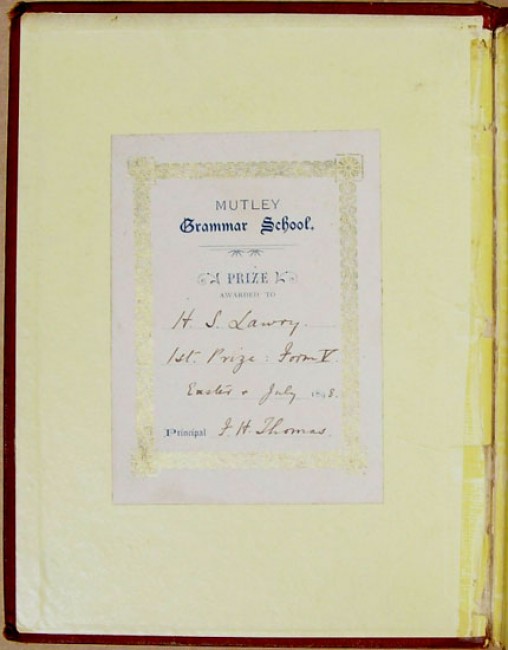 MUTLEY
Grammar School.
PRIZE
AWARDED TO
H. S. Lawry.
1st. Prize: Form V.
Easter & July 1898.
Principal F. H. Thomas.